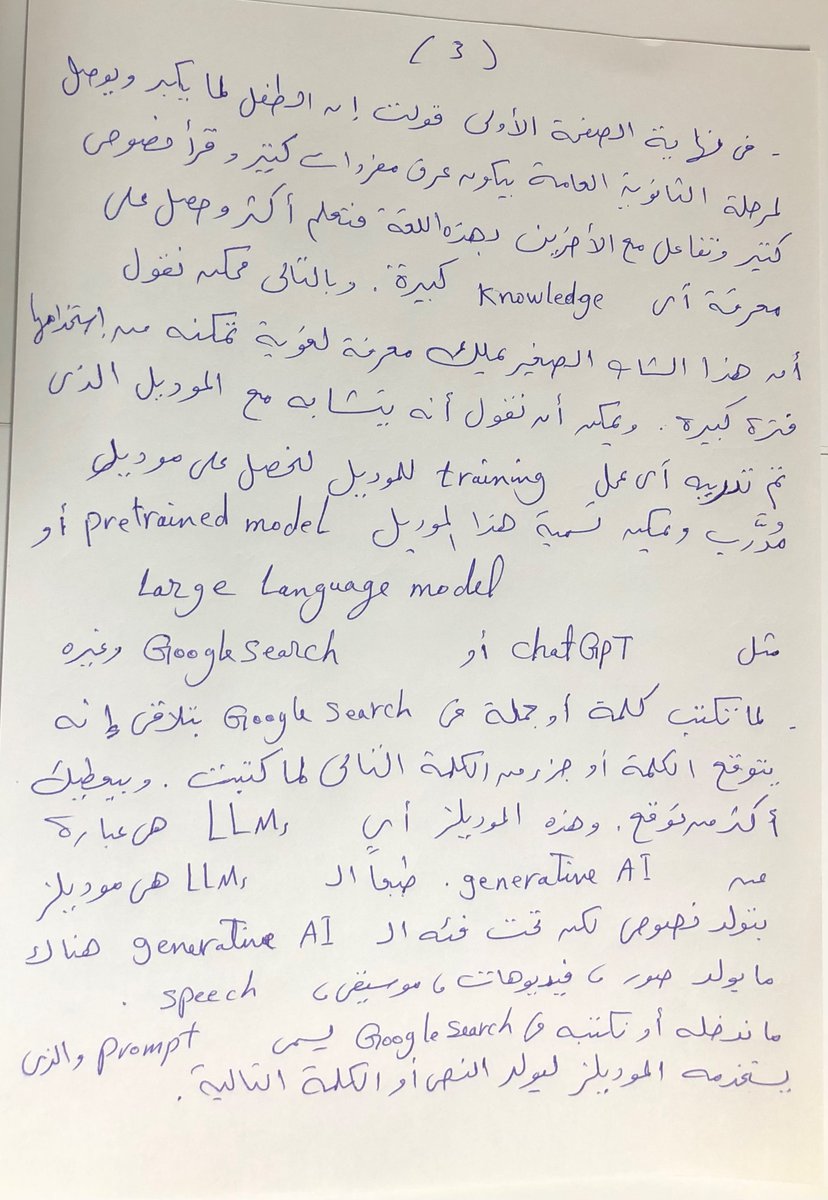 (3)
- فى نهاية الصفحة الأولى قولت إن الطفل لما يكبر ويوصل
لمرحلة الثانوية العامة بيكون عرف مفردات كتير وقرأ نصوص
كتير وتفاعل مع الأخرين بهذه اللغة فتعلم أكثر وحصل على
معرفة أى Knowledge كبيرة. وبالتالى ممكن نقول
أن هذا الشاب الصغير يملك معرفة لغوية تمكنه من إستخدامها
فترة كبيرة. ويمكن أن نقول أنه يتشابه مع الموديل الذى
تم تدريبه أى عمل training للموديل لنحصل على موديل
مُدَرَّب ويمكن تسمية هذا الموديل pretrained model أو
Large Language model
مثل chatGPT أو Google search وغيره
- لما تكتب كلمة أو جملة فى Google search بتلاقى إنه
يتوقع الكلمة أو جزء من الكلمة التالى لما كتبت. وبيعطيك
أكثر من توقع. وهذه الموديلز أي LLMs هى عبارة
عن generative AI. طبعاً الـ LLMs هى موديلز
بتولد نصوص لكن تحت فئه الـ generative AI هناك
ما يولد صور، فيديوهات، موسيقى، speech.
ما ندخله أو نكتبه فى Google search يسمى prompt والذى
يستخدمه الموديلز ليولد النص أو الكلمة التالية.